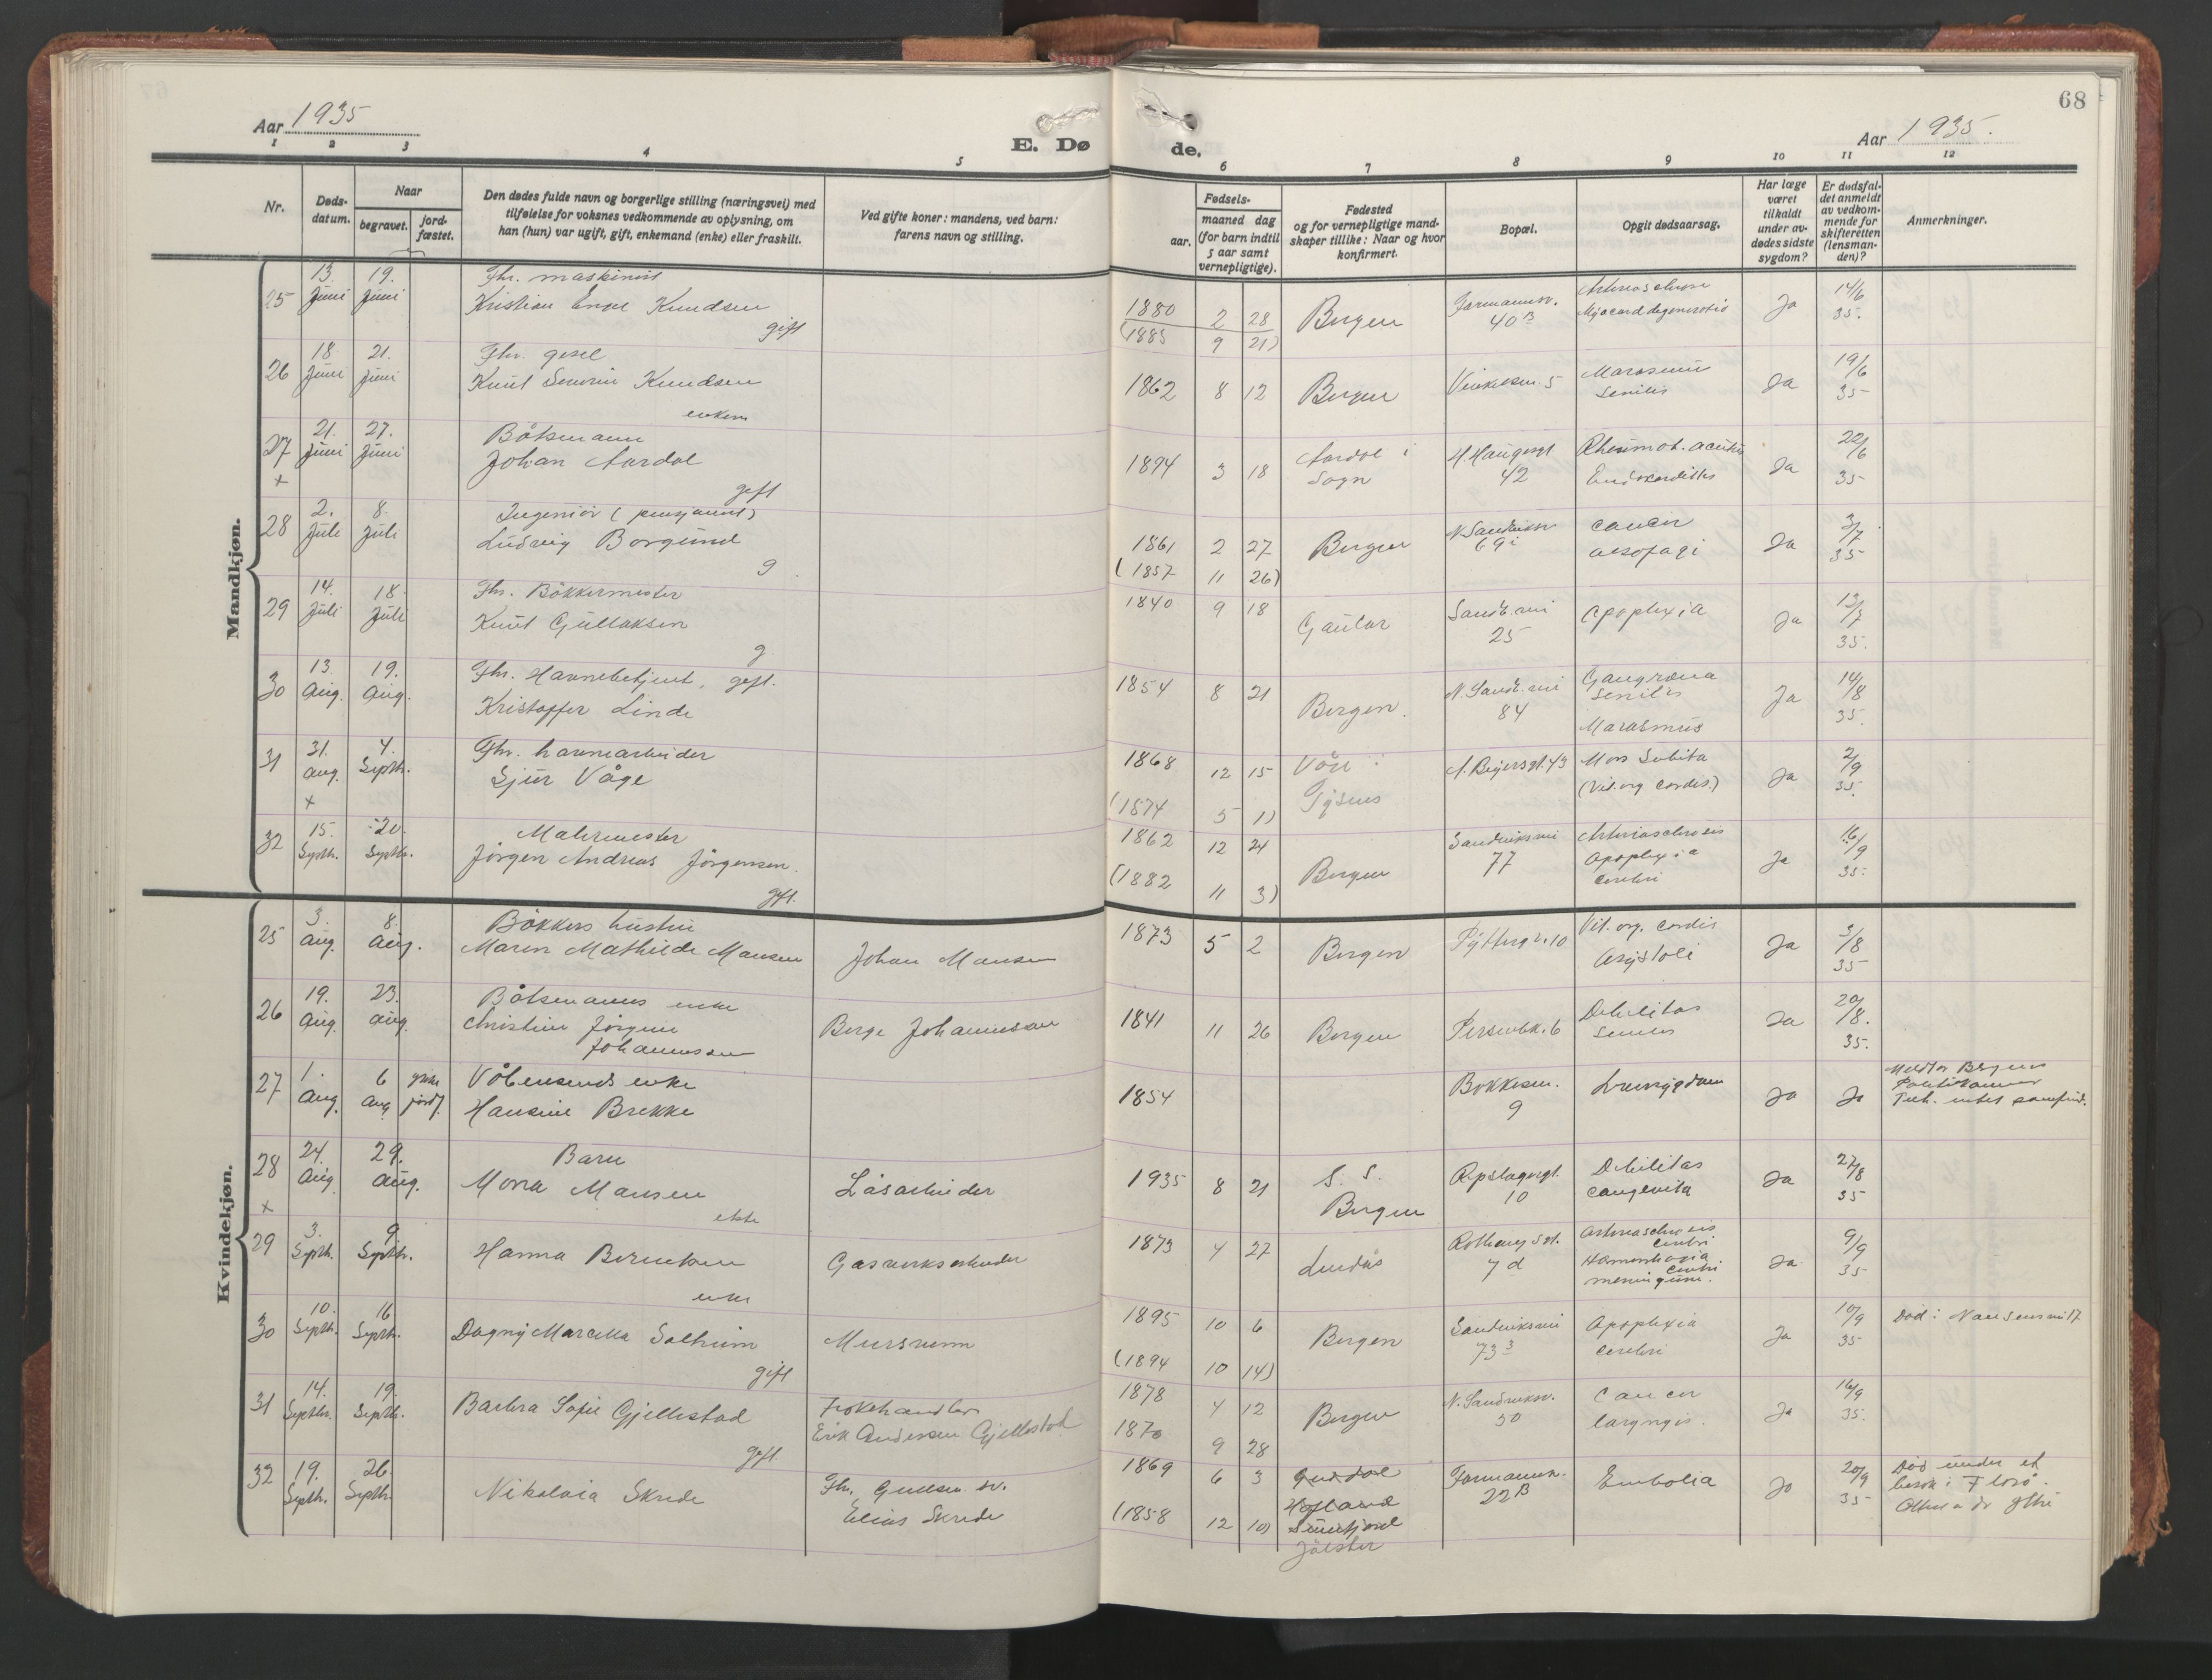 68
Aar 1935
E. Dø
de,
Aar 1935.
1 2 3 4 5 6 7 8 9 10 11 12
Nr.
Døds-
datum.
Naar
begravet.
jord-
fæstet.
Den dødes fulde navn og borgerlige stilling (næringsvei) med
tilføielse for voksnes vedkommende av oplysning, om
han (hun) var ugift, gift, enkemand (enke) eller fraskilt.
Ved gifte koner: mandens, ved barn:
farens navn og stilling.
Fødsels-
aar.
maaned dag
(for barn indtil
5 aar samt
vernepligtige).
Fødested
og for vernepligtige mand-
skaper tillike: Naar og hvor
konfirmert.
Bopæl.
Opgit dødsaarsag.
Har læge
været
tilkaldt
under av-
dødes sidste
sygdom?
Er dødsfal-
det anmeldt
av vedkom-
mende for
skifteretten
(lensman-
den)?
Anmerkninger.
Mandkjøn.
25 13. Juni 19. Juni
Fhr. maskinist
Kristian Knudsen
gift
1880 2 28
(1885 9 21)
Bergen
40 B
Ja 14/6 35.
26 18. Juni 21. Juni
Fhr. gesel
Knut Severin Knudsen
enkem
1862 8 12 Bergen
Marasmus
senilis
Ja 19/6 35
27 21. Juni 27. Juni
+
Båtsmann
Johan Aardal
gift
1894 3 18
Aardal i
Sogn
H. Haugesgt
42
Rheumat. acutus
Endokarditis
Ja 22/6 35
28 2. Juli 8. Juli
Ingeniør (pensjonert)
Ludvig Borgund
g
1861 2 27
(1857 11 26)
Bergen
N. Sandviksv.
69 i
cancer
aesofagi
Ja 3/7 35
29 14. Juli 18. Juli
Fhr. Bøkkermester
Knut Gullaksen
g
1840 9 18
Gaular
Sandv.vei
25
Apoplexia
Ja 13/7 35.
30 13. Aug. 19. Aug.
Fhr. Havnebetjent, gift.
Kristoffer Linde
1854 8 21
Bergen.
N. Sandv.vei
84
Gangræna
senilis
Marasmus
Ja 14/8 35.
31 31. Aug. 4. Septb.
+
Fhr. havnearbeider
Sjur Våge
1868 12 15
(1874 5 1)
Tysnes
A. Beyersgt. 43
Mors Subita
(Vit. org cordis.)
Ja 2/9 35.
32 15. Septb. 20. Septb.
Malermester
Jörgen Andreas Jörgensen.
gift.
1862 12 24
(1882 11 3)
Bergen
Sandviksvei
77
Arteriosclerosis
Apoplexia
cerebri
Ja 16/9 35.
Kvindekjøn.
25 3. Aug. 8. Aug.
Bøkkers hustru
Maren Mathilde Mansen
Johan Mansen
1873 5 2
Bergen
10
Vit. org. cordis
Asystoli
Ja 3/8 35
26 19. Aug. 23. Aug.
Båtsmanns enke
Christine Jörgine
Johannessen
Berge Johannessen
1841 11 26
Bergen
6
Debilitas
senilis
Ja 20/8. 35.
27 1. Aug. 6 Aug
jordf.
enke
Hansine Brekke
1854
9
Ja Ja
Meldt av Bergens
28 24. Aug. 29. Aug.
+
Barn
Mona Mansen
ekte
Løsarbeider
1935 8 21
S. S.
Bergen
Repslagergt.
10
Debilitas
congenita
Ja 27/8 35
29 3. Septb. 9 Septb.
Hanna Berentsen
enke
Gasverksarbeider
1873 4 27
Lindås
7 d
Arteriosclerosis
cerebri
Hæmorrhagia
cerebri
meningium.
Ja 9/9 35
30 10. Septb. 16 Septb.
Dagny Marcella Solheim
gift
Mursvenn
1895 10 6
(1894 10 14)
Bergen
Sandviksvei
73 3
Apoplexia
cerebri
Ja 10/9 35
Død i Nansensvei 17
31 14. Septbr. 19. Septb.
Barbra Sofie Gjellestad
gift
Erik Andersen Gjellestad
1878 4 12
1870 9 28
Bergen
N. Sandviksv.
30
Cancer
laryngis.
Ja 16/9 35.
32 19. Septb. 26. Septb.
Nikolaia Skrede
Elias Skrede
1869 6 3
(1858 12 10)
Sunnfjord
Jölster
22 B
Embolia
Ja 20/9 35
Død under et
besøk i Florø.